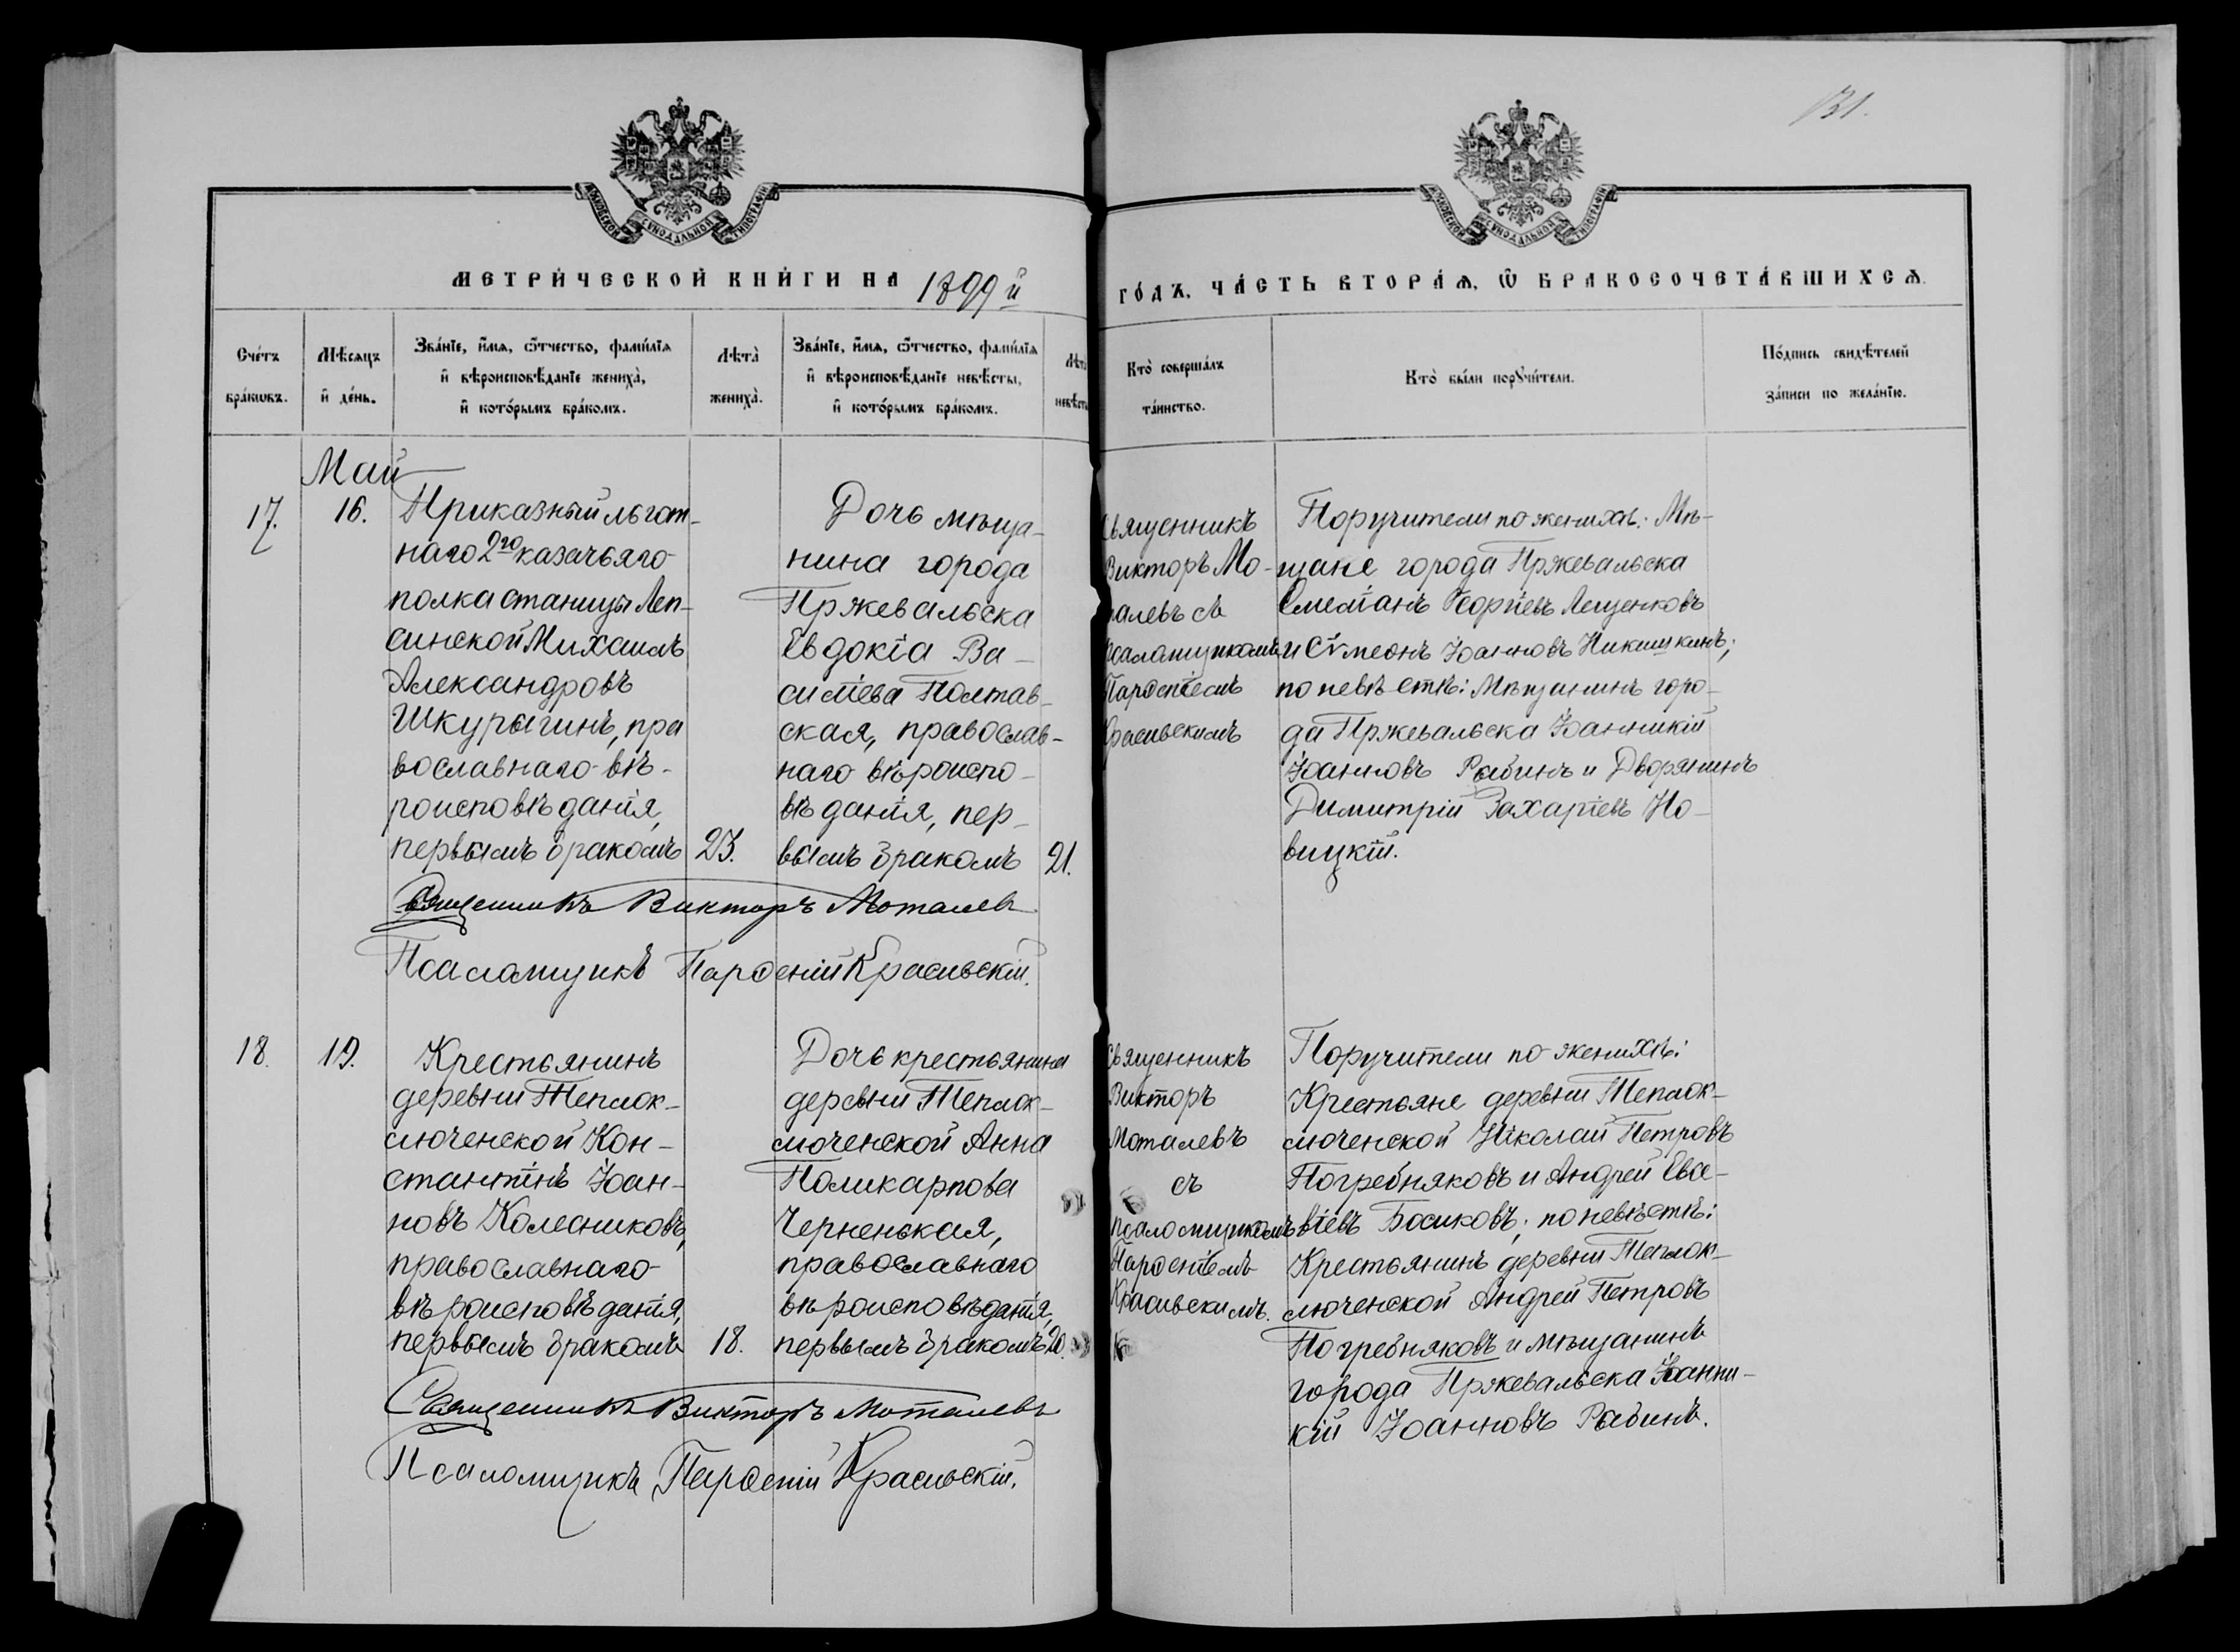 131.
МОСКОВСКОЙ СѴНОДАЛЬНОЙ ТИПОГРАФІИ
МОСКОВСКОЙ СѴНОДАЛЬНОЙ ТИПОГРАФІИ
МЕТРИ́ЧЕСКОЙ КНИ́ГИ НА 1899 й
ГО́ДЪ, ЧА́СТЬ ВТОРА́Ѧ, Ѽ БРАКОСОЧЕТА́ВШИХСѦ.
Сче́тъ
бра́кѡвъ.
Мѣсѧцъ
и҆ де́нь.
Зва́нїе, и҆́мѧ, ѻ҆́тчество, фами́лїѧ
и҆ вѣроисповѣ́данїе жениха̀,
и҆ кото́рымъ бра́комъ.
Лѣта̀
жениха̀.
Зва́нїе, и҆́мѧ, ѻ҆́тчество, фами́лїѧ
и҆ вѣроисповѣ́данїе невѣ́сты,
и҆ кото́рымъ бра́комъ.
Лѣта̀
невѣ́сты
Кто̀ соверша́лъ
та́инство.
Кто̀ бы́ли порꙋчи́тели.
По́дпись свидѣ́телей
за́писи по жела́нїю.
Май
17.
16.
Приказный льгот-
наго 2го казачьяго
полка станицы Леп-
синской Михаилъ
Александровъ
Шкурыгинъ, пра
вославнаго вѣ-
роисповѣданія,
первымъ бракомъ
23.
Дочь мѣща-
нина города
Пржевальска
Евдокія Ва-
силіева Полтав-
ская, православ-
наго вѣроиспо-
вѣданія, пер-
вымъ бракомъ
21.
Священникъ
Викторъ Мо-
талевъ съ
псаломщикомъ
Парѳеніемъ
Красивскимъ
Поручители по женихѣ: Мѣ-
щане города Пржевальска
Емеліанъ Георгіевъ Лещенковъ
и Сѵмеонъ Іоанновъ Никишкинъ;
по невѣстѣ: Мѣщанинъ горо-
да Пржевальска Іоанникій
Іоанновъ Рябинъ и Дворянинъ
Димитрій Захаріевъ Но-
вицкій.
Священникъ Викторъ Моталевъ
Псаломщикъ Парѳеній Красивскій.
18.
19.
Крестьянинъ
деревни Теплок-
люченской Кон-
стантінъ Іоан-
новъ Колесниковъ,
православнаго
вѣроисповѣданія,
первымъ бракомъ
18.
Дочь крестьянина
деревни Теплок-
люченской Анна
Поликарпова
Черненькая,
православнаго
вѣроисповѣданія,
первымъ бракомъ
20.
Священникъ
Викторъ
Моталевъ
съ
псаломщикомъ
Парѳеніемъ
Красивскимъ.
Поручители по женихѣ:
Крестьяне деревни Теплок-
люченской Николай Петровъ
Погребняковъ и Андрей Евсе-
віевъ Босиковъ; по невѣстѣ:
Крестьянинъ деревни Теплок-
люченской Андрей Петровъ
Погребняковъ и мѣщанинъ
города Пржевальска Іоанни-
кій Іоанновъ Рябинъ.
Священникъ Викторъ Моталевъ
Псаломщикъ Парѳеній Красивскій.